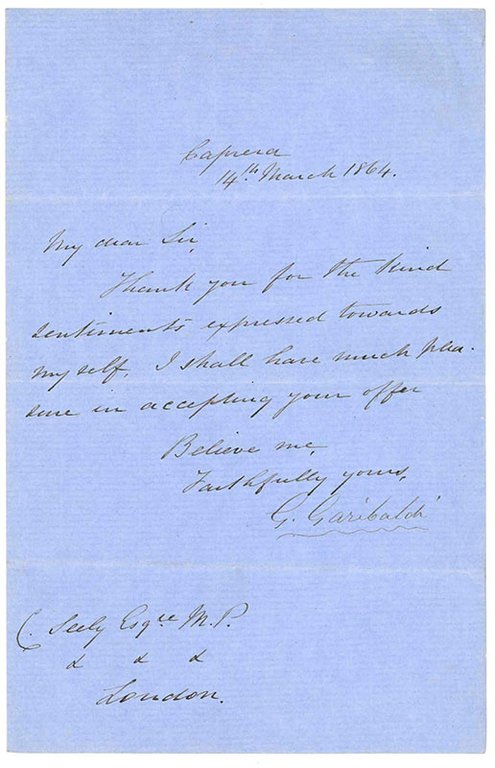 Caprera
14th March 1864.
My dear Sir,
Thank you for the kind
sentiments expressed towards
myself. I shall have much plea-
sure in accepting your offer
Believe me,
Faithfully yours,
G. Garibaldi
C. Seely Esqre M.P.
& & &
London.